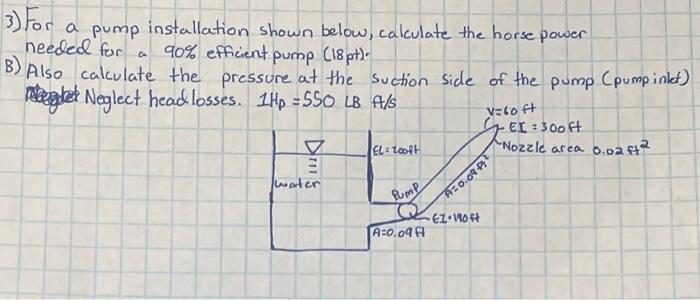 3) For a pump installation shown below, calculate the horse power
needed for a 90% efficient pump (18pt).
B) Also calculate the pressure at the suction side of the pump (pump inlet)
Neglect head losses. 1Hp = 550 LB ft/s
V=60 ft
EI = 300ft
Nozzle area 0.02 ft²
EL=200ft
water
Pump
A=0.09 ft²
EI=190ft
A=0.09ft